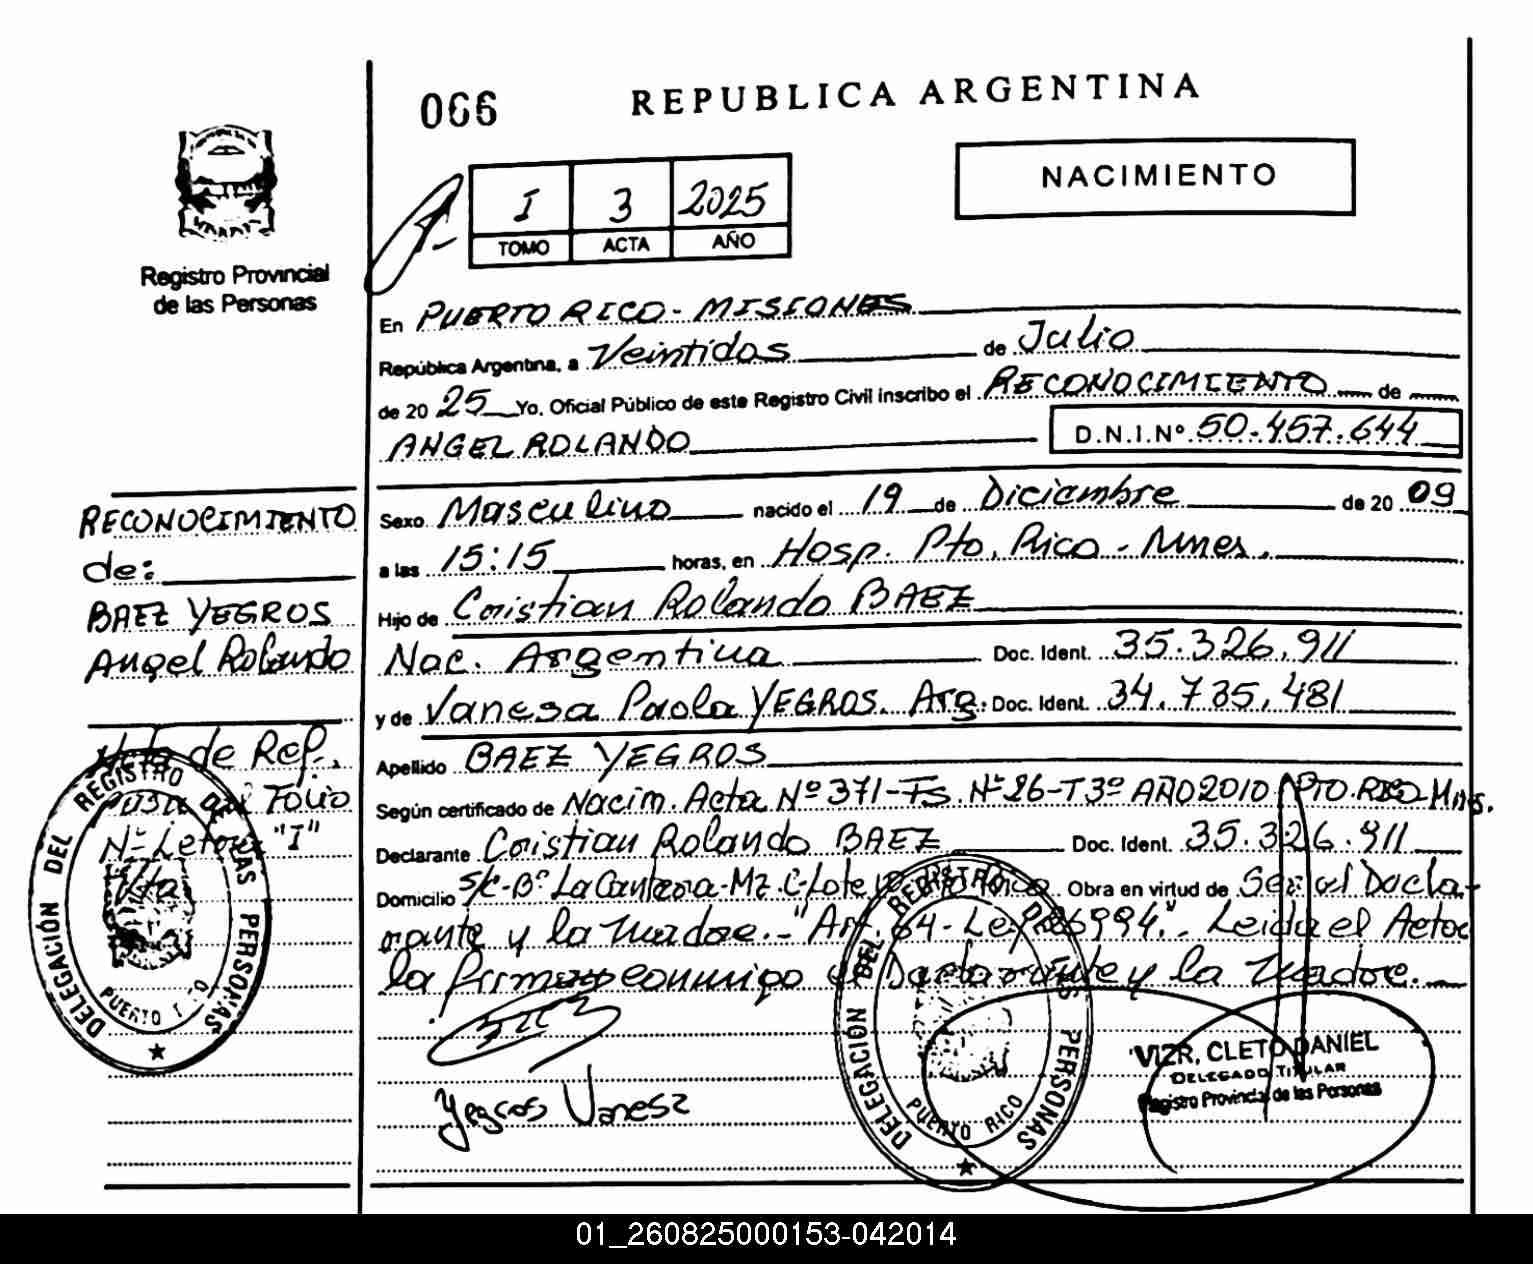 066
REPUBLICA ARGENTINA
NACIMIENTO
I 3 2025
TOMO ACTA AÑO
Registro Provincial
de las Personas
En PUERTO RICO - MISIONES
República Argentina, a Veintidos de Julio
de 20 25 Yo, Oficial Público de este Registro Civil inscribo el RECONOCIMIENTO de
ANGEL ROLANDO D.N.I.Nº 50.457.644
Sexo Masculino nacido el 19 de Diciembre de 20 09
a las 15:15 horas, en Hosp. Pto. Rico - Mnes.
Hijo de Cristian Rolando BAEZ
Nac. Argentina Doc. Ident. 35.326.911
y de Vanesa Paola YEGROS. Arg. Doc. Ident. 34.735.481
Apellido BAEZ YEGROS
Según certificado de Nacim. Acta Nº 371-Fs. Nº 26-T3º AÑO 2010 PTO. RICO-Mnes.
Declarante Cristian Rolando BAEZ Doc. Ident. 35.326.911
Domicilio S/C-Bº La Cantera-Mz. C-Lote Rico Obra en virtud de Ser el Decla-
rante y la Madre.-"Art. 64- Ley 26994."- Leida el Acta
la firman conmigo el Declarante y la Madre.
Yegros Vanesa
VIZR, CLETO DANIEL
DELEGADO TITULAR
Registro Provincial de las Personas
DELEGACIÓN DEL REGISTRO DE LAS PERSONAS
PUERTO RICO
RECONOCIMIENTO
de:
BAEZ YEGROS
Angel Rolando
Nota de Ref.
Pasa al Folio
Nº Letra "I"
Vta
DELEGACIÓN DEL REGISTRO DE LAS PERSONAS
PUERTO RICO
01_260825000153-042014